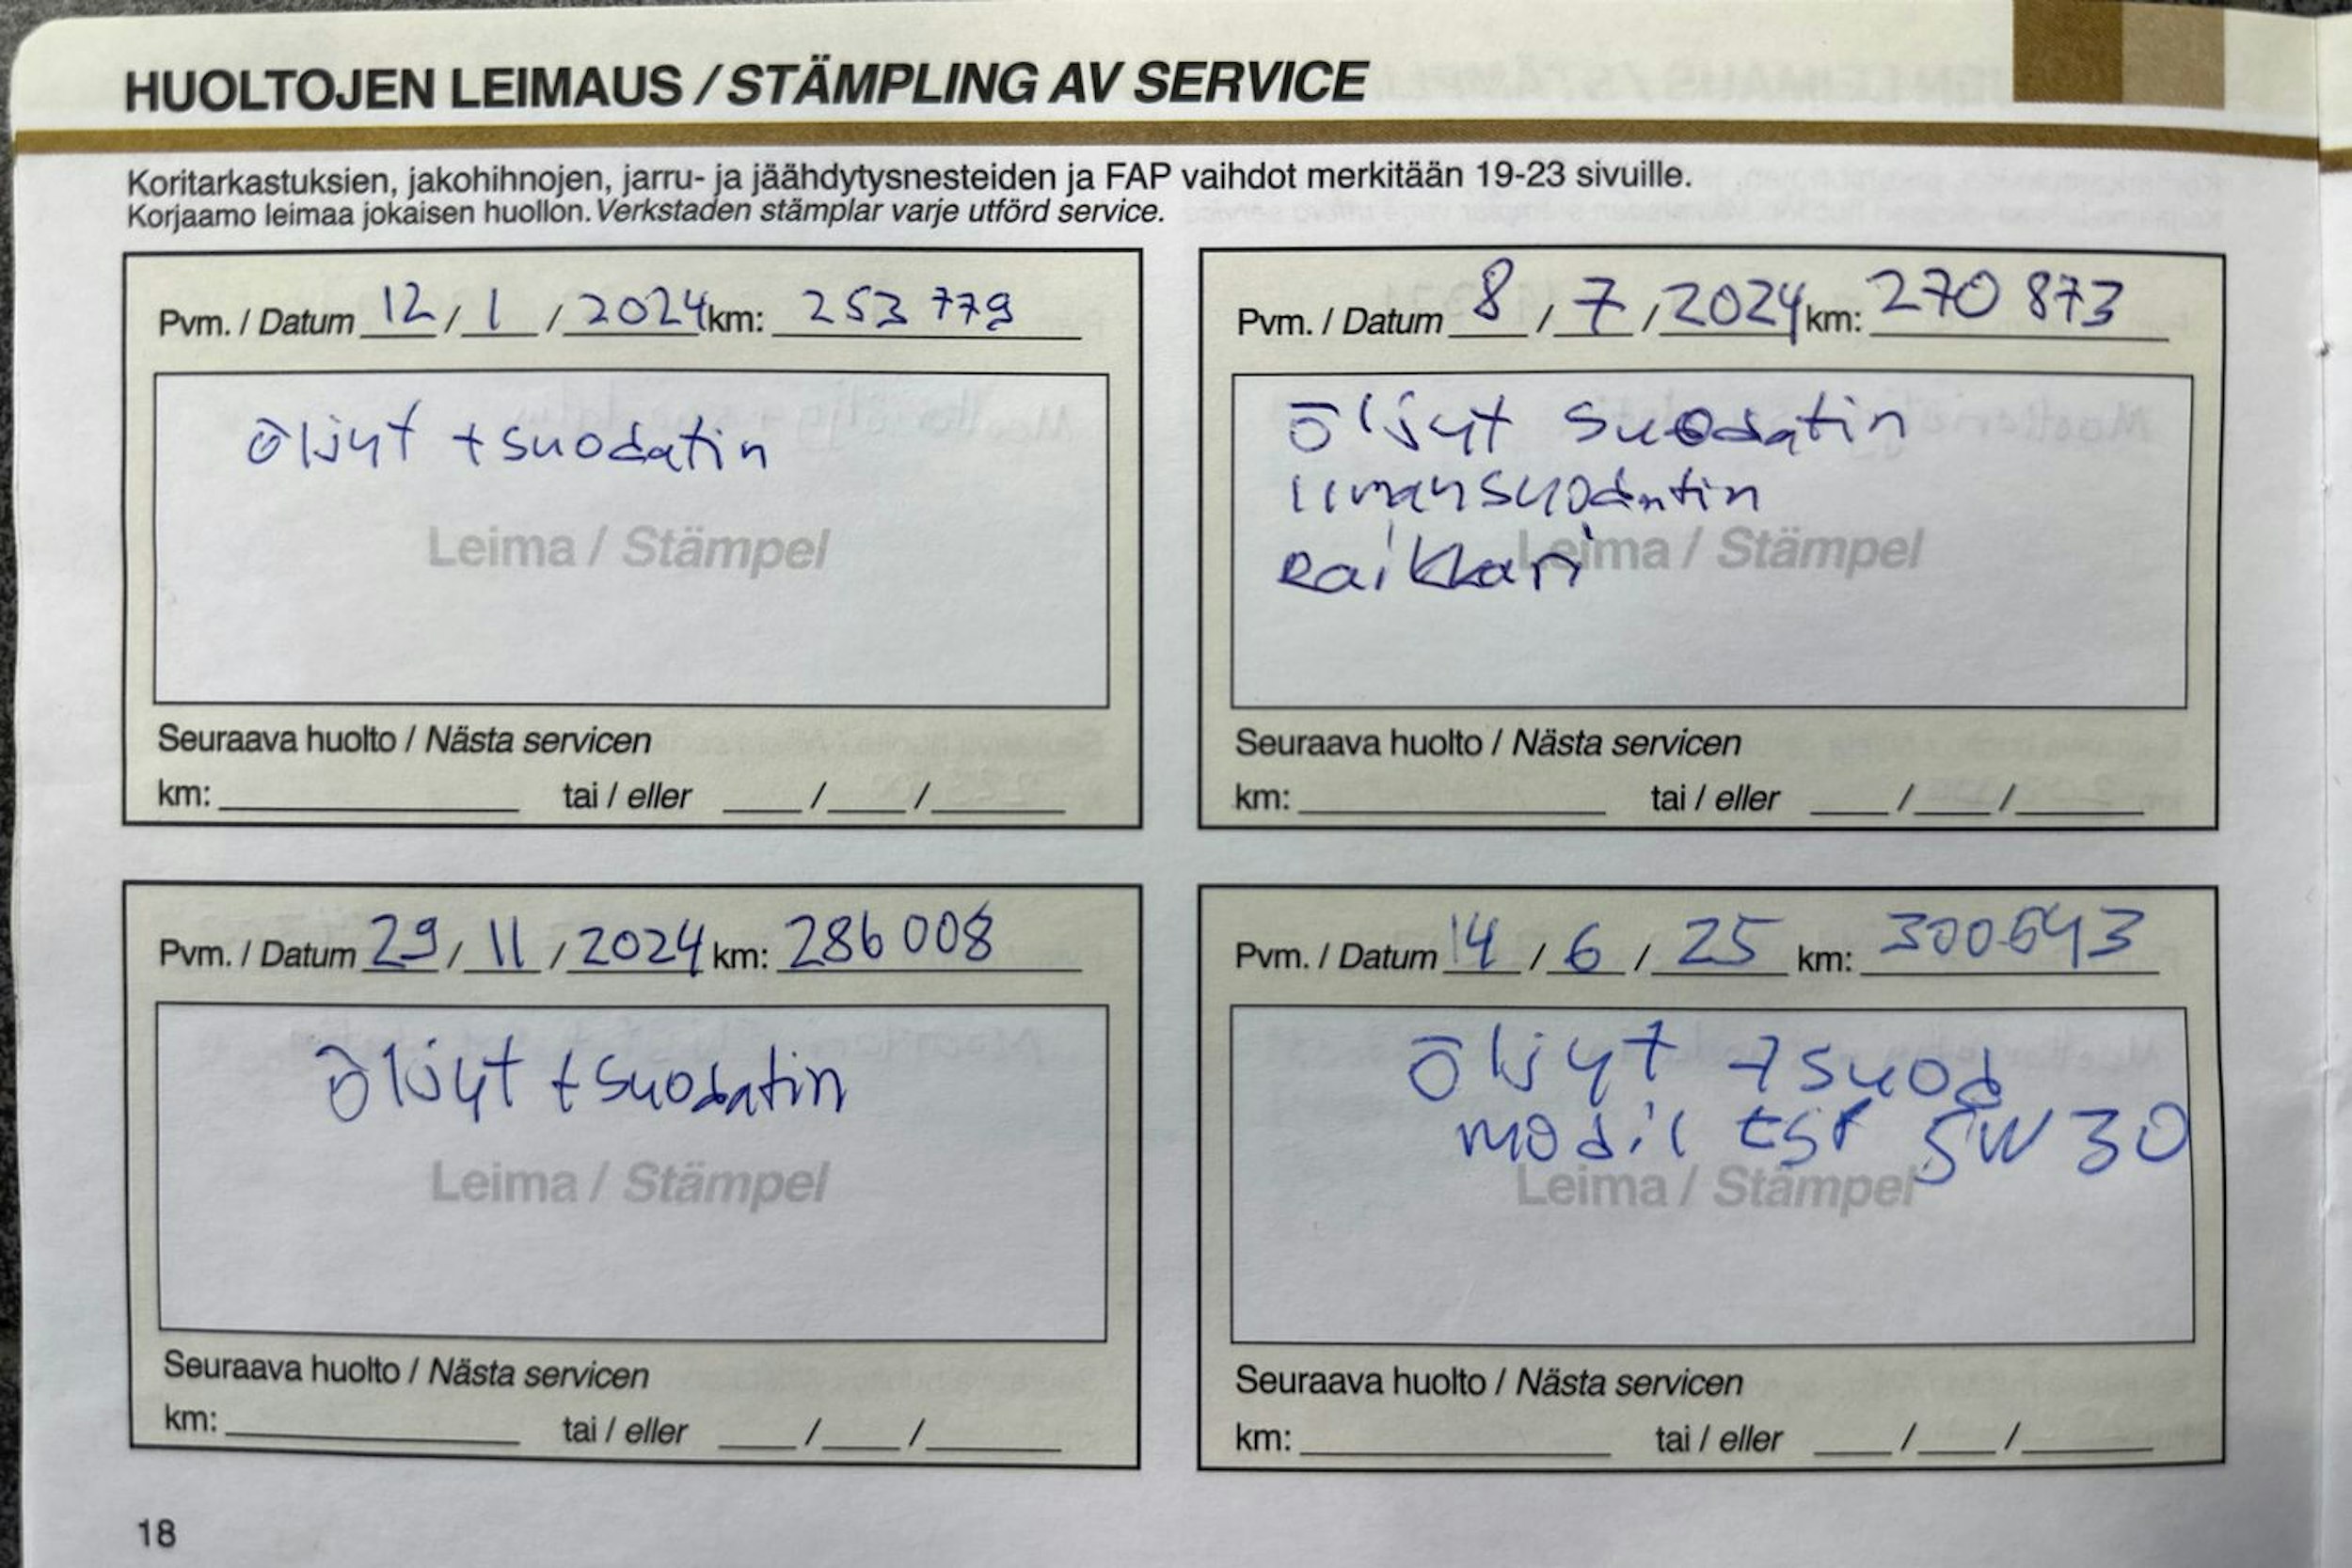 HUOLTOJEN LEIMAUS / STÄMPLING AV SERVICE
Koritarkastuksien, jakohihnojen, jarru- ja jäähdytysnesteiden ja FAP vaihdot merkitään 19-23 sivuille.
Korjaamo leimaa jokaisen huollon. Verkstaden stämplar varje utförd service.
Pvm. / Datum 12 / 1 / 2024 km: 253 779
öljyt + suodatin
Leima / Stämpel
Seuraava huolto / Nästa servicen
km: tai / eller / /
Pvm. / Datum 8 / 7 / 2024 km: 270 873
öljyt suodatin
ilmansuodatin
Raikkari
Leima / Stämpel
Seuraava huolto / Nästa servicen
km: tai / eller / /
Pvm. / Datum 29 / 11 / 2024 km: 286 008
öljyt + suodatin
Leima / Stämpel
Seuraava huolto / Nästa servicen
km: tai / eller / /
Pvm. / Datum 14 / 6 / 25 km: 300643
öljyt + suod
mobil ESP 5W 30
Leima / Stämpel
Seuraava huolto / Nästa servicen
km: tai / eller / /
18